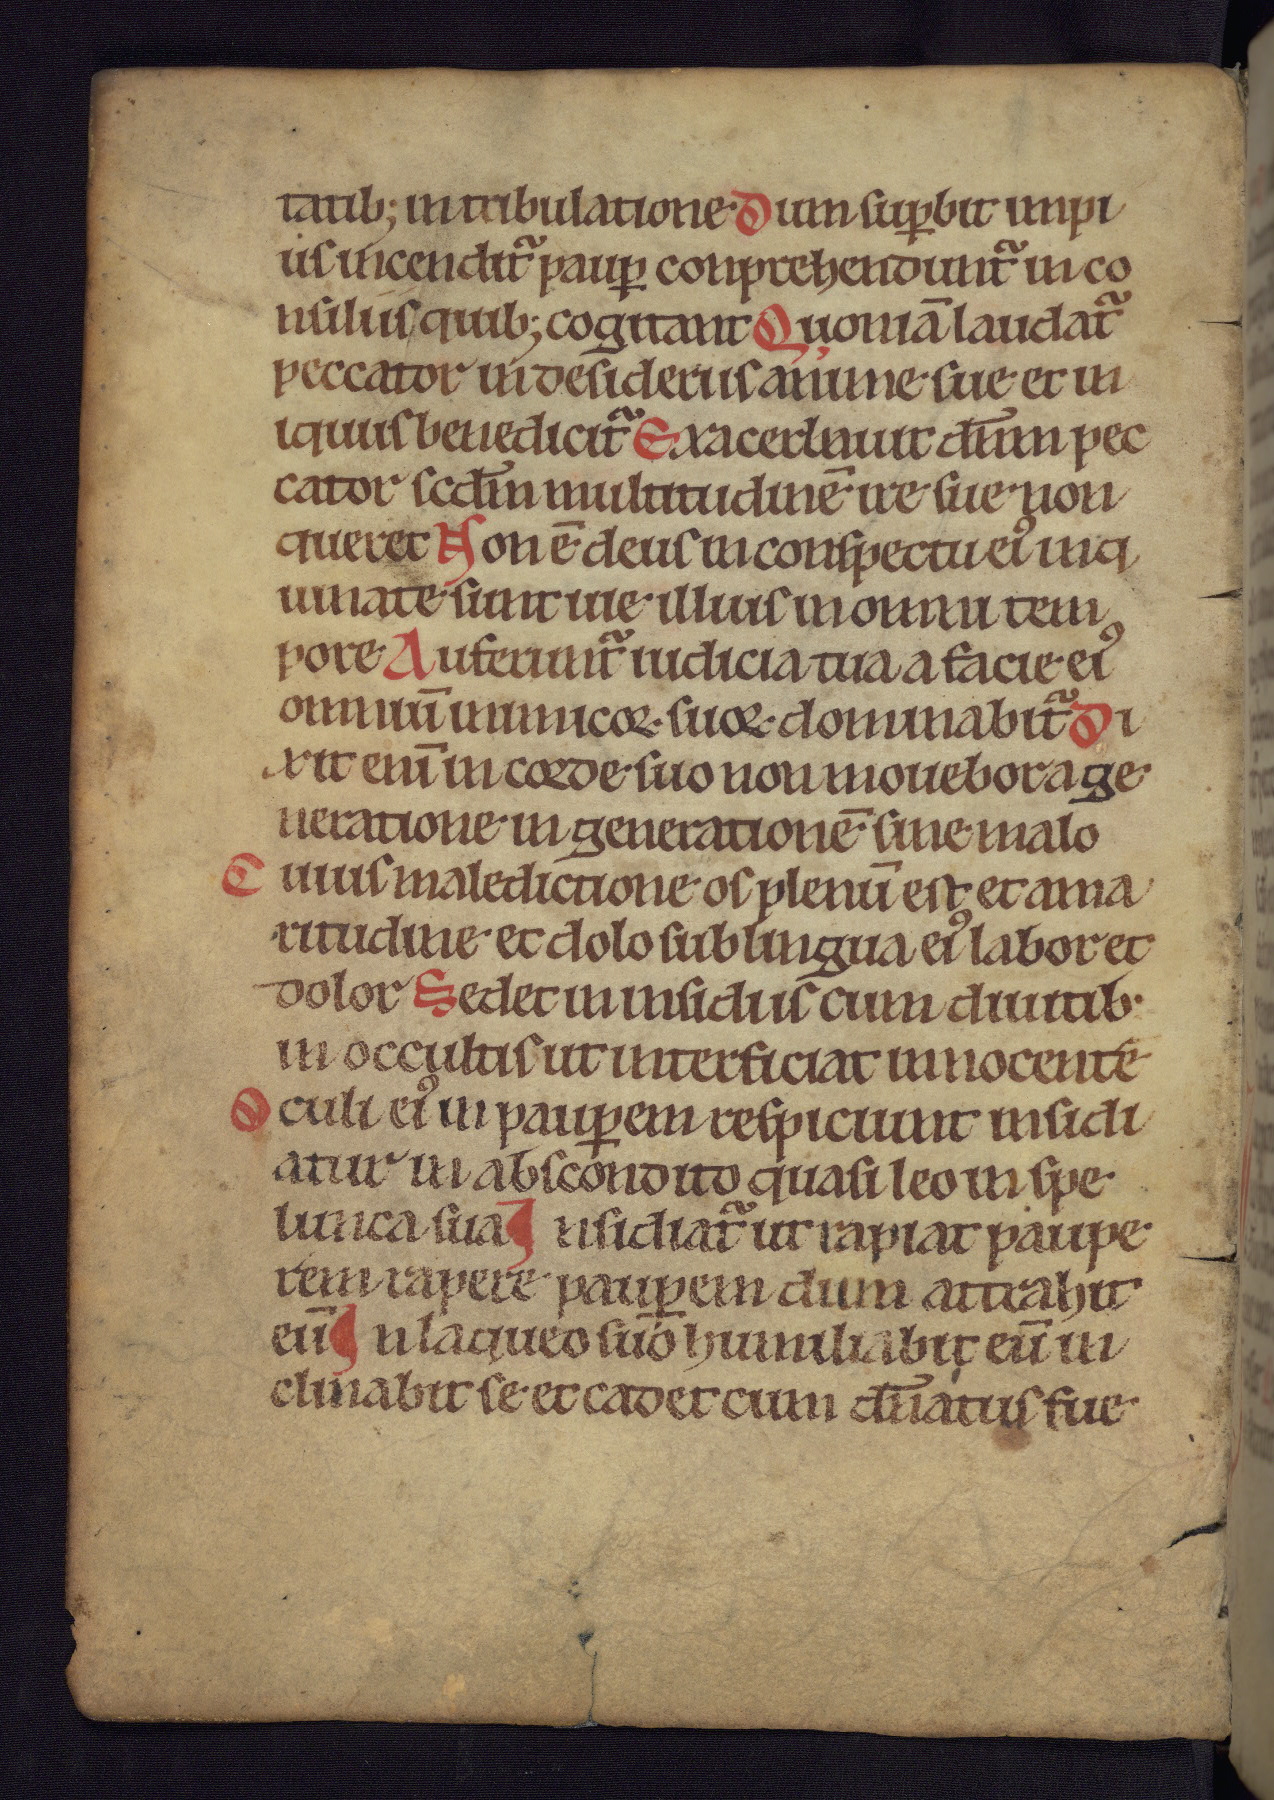 tatib; in tribulatione Dum suꝑbit impi
us incendit᷑ pauꝑ conprehendunt᷑ in co
nsiliis quib; cogitant Quoniā laudat᷑
peccator in desideriis anime sue et in
iquus benedicit᷑ Exacerbauit dn̄m pec
cator scdm̄ multitudinē ire sue non
queret Non ē deus in conspectu eiꝰ inq
uinate sunt uie illius in omni tem
pore Auferunt᷑ iudicia tua a facie eiꝰ
omniū inimicoꝝ suoꝝ dominabit᷑ Di
xit enī in corde suo non mouebor a ge
neratione in generationē sine malo
Cuius maledictione os plenū est et ama
ritudine et dolo sub lingua eiꝰ labor et
dolor Sedet in insidiis cum diuitib·
in occultis ut interficiat innocentē
Oculi eiꝰ in pauꝑem respiciunt insidi
atur in abscondito quasi leo in spe
lunca sua Insidiat᷑ ut rapiat paupe
rem rapere pauꝑem dum attrahit
eū In laqueo suo humiliabit eū in
clinabit se et cadet cum dn̄atus fue